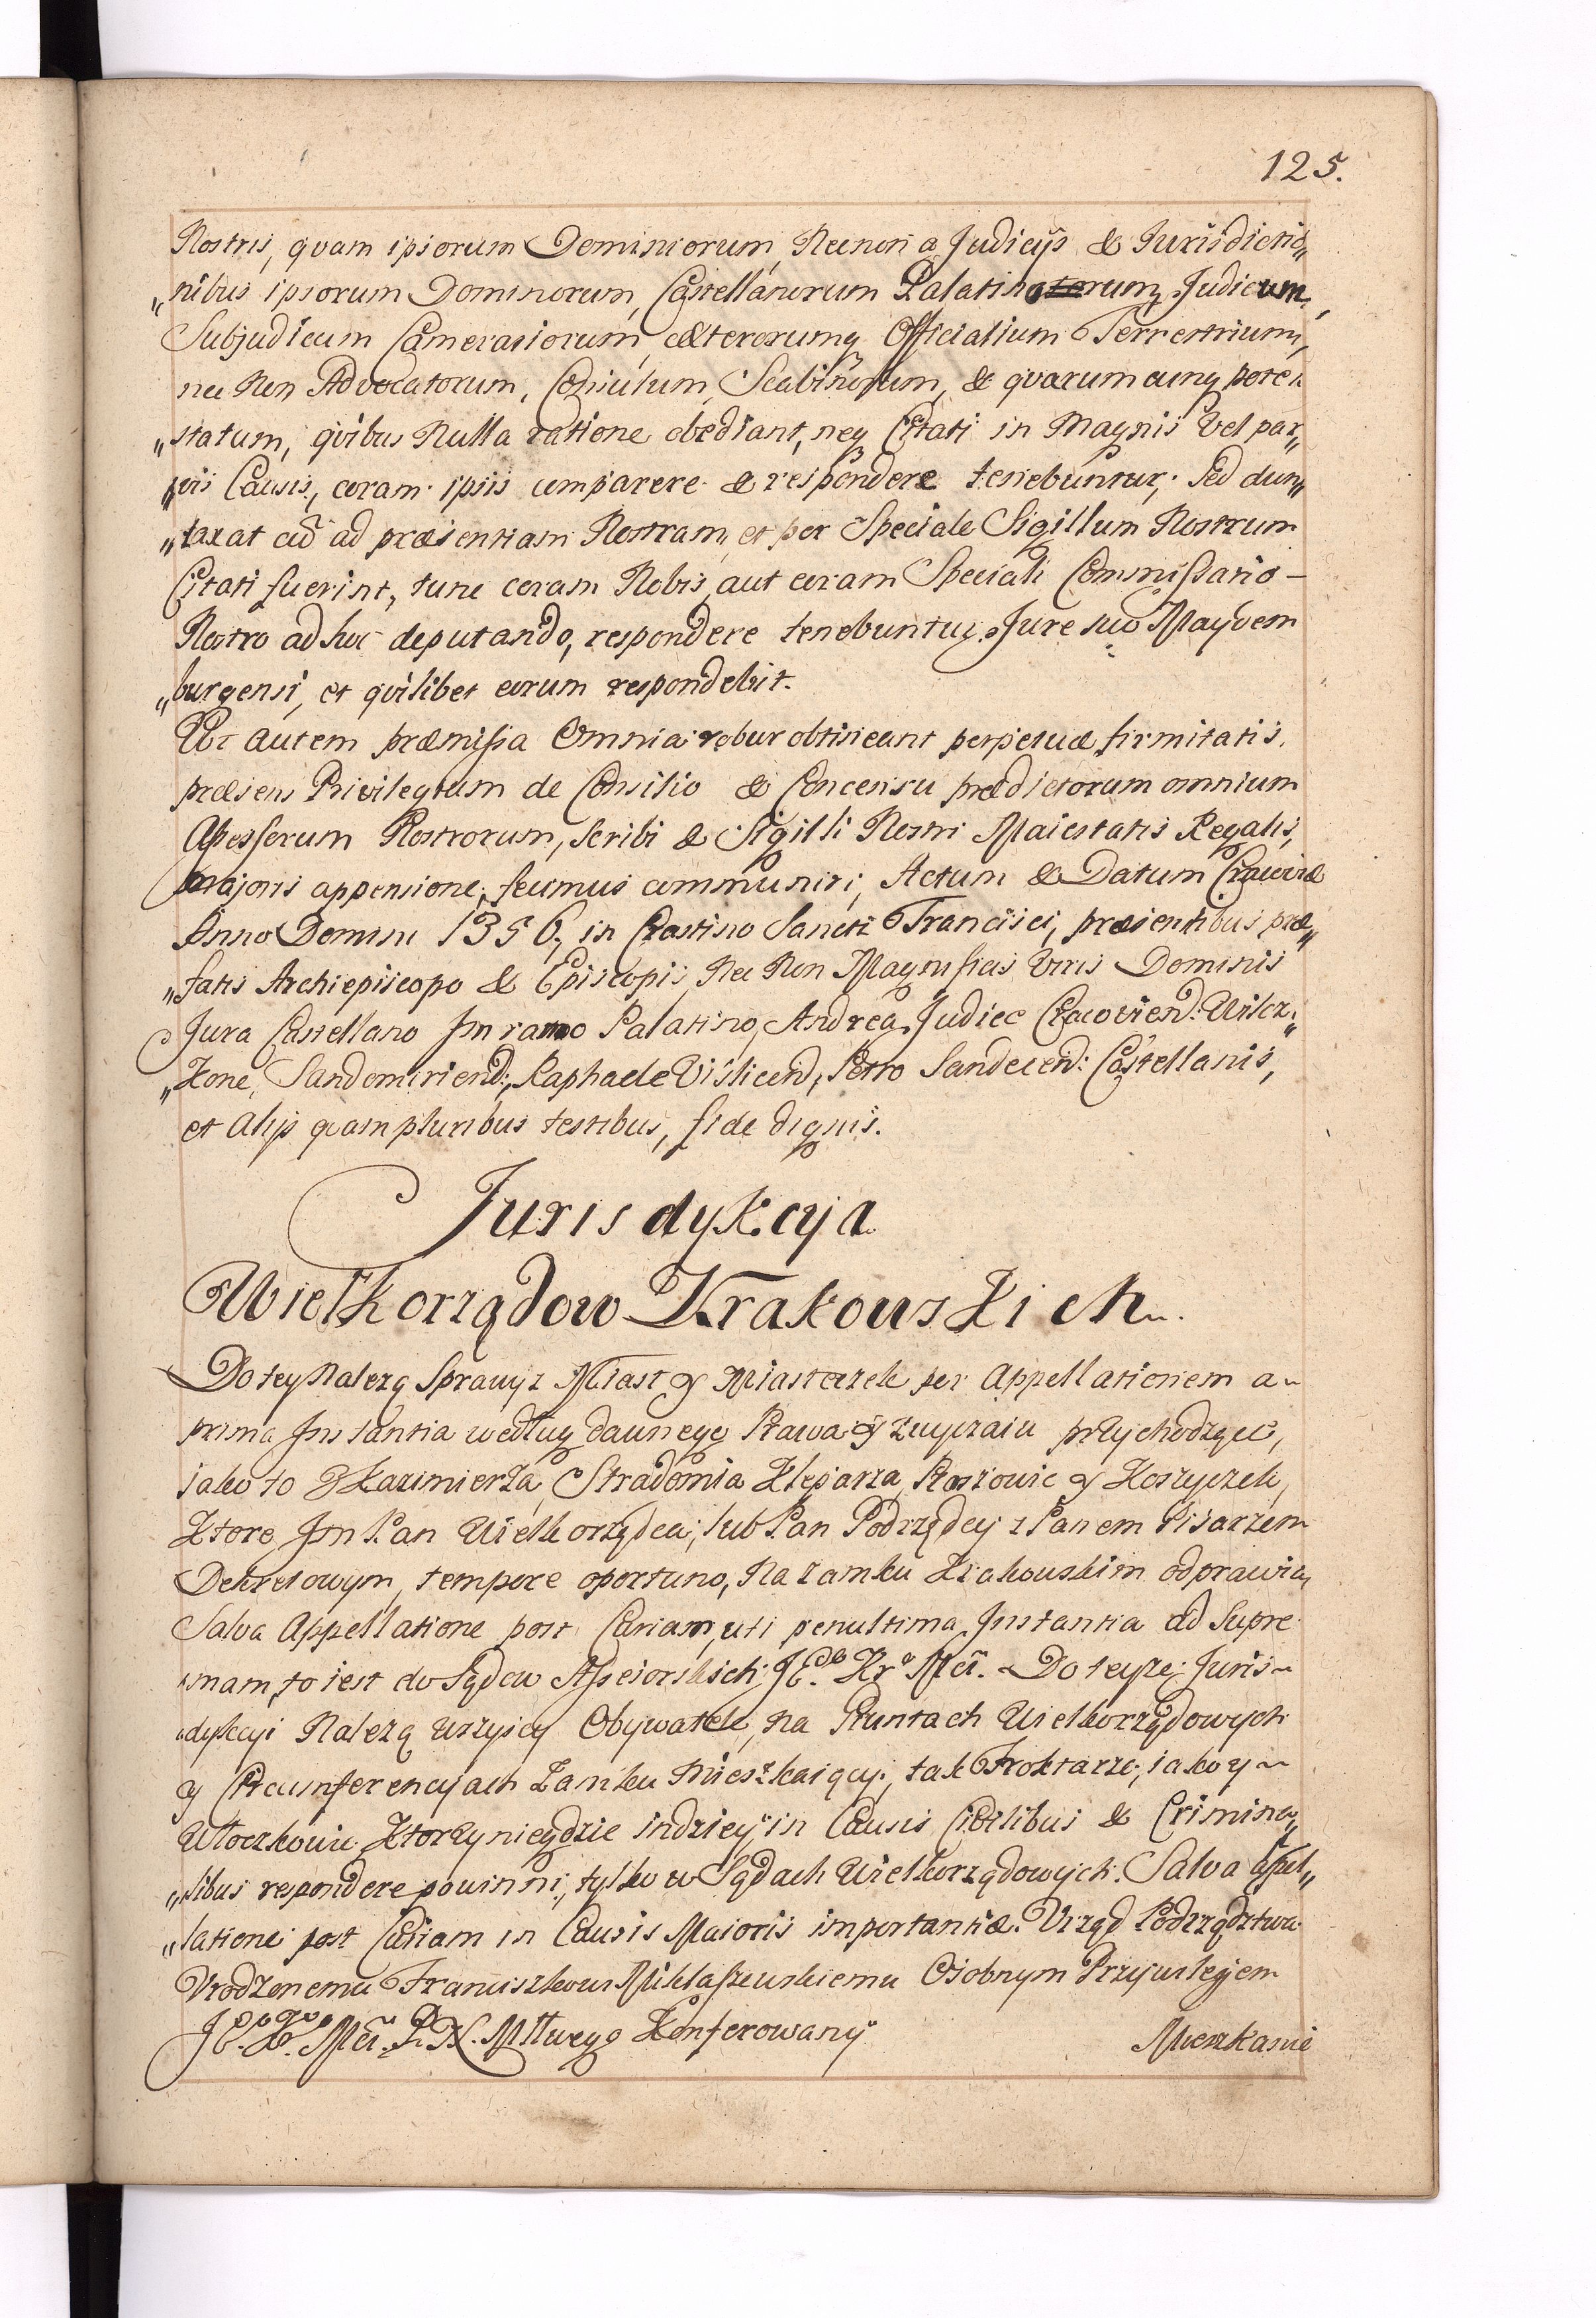 125.
Nostris, quam ipsorum Dominiorum, Necnon a Judicijs & Jurisdictio„
„nibus ipsorum Dominorum, Castellanorum Palatinorum, Judicum,
Subjudicum Camerariorum, cæterorumq Officialium Terrestrium,
nec Non Advocatorum, Consulum, Scabinorum, & quarumcunq potes
„statum, quibus Nulla ratione obediant, neq Citati in Magnis Vel par„
„vis Causis, coram ipsis comparere & respondere tenebuntur, Sed dun„
„taxat cũ ad præsentiam Nostram, et per Speciale Sigillum Nostrum
Citati fuerint, tunc coram Nobis, aut coram Speciali Commissario –
Nostro ad hoc deputando, respondere tenebuntur, Jure suo Maydem
„burgensi, et quilibet eorum respondebit.
Vt autem præmissa Omnia robur obtineant perpetuæ firmitatis,
præsens Privilegium de Consilio & Concensu prædictorum omnium
Assessorum Nostrorum, scribi & Sigilli Nostri Maiestatis Regalis,
majoris appensione, fecimus communiri, Actum & Datum Cracoviæ
Anno Domini 1356, in Crastino Sancti Francisci, præsentibus præ„
„fatis Archiepiscopo & Episcopis, Nec Non Magnificis Viris Dominis
Jura Castellano Imramo Palatino, Andrea Judice Cracoviend: Wilcz„
„kone, Sandomiriend:, Raphaele Vislicend, Petro Sandecend: Castellanis,
et Alijs quampluribus testibus, fide dignis.
Jurisdykcyja
Wielkorządow Krakowskich.
Do tey Nalezą Sprawy z Miast y Miasteczek per Appellationem a~
prima Instantia według dawnego Prawa y zwyczaiu przychodzące,
iako to z Kazimierza, Stradomia Kleparza, Proszowic y Koszyczek,
Ktore Jm Pan Wielkorządca, lub Pan Podrządcy z Panem Pisarzem
Dekretowym, tempore oportuno, Na Zamku Krakowskim odprawia,
Salva Appellatione post Cariam, uti penultima Instantia ad Supre
„mam, to iest do Sądow Assesorskich JE. Kr Mci. Do teyze Juris~
„dykcyi Nalezą wszyscy Obywatele, na Gruntach Wielkorządowych
y Circumferencyach Zamku Mieszkaiący, tak Troktarze, iako y ~
Włoczkowie. Ktorzy niegdzie indziey in Causis Civilibus & Crimina„
„libus respondere powinni, tylko w Sądach Wielkorządowych. Salva Appel„
„latione post Cariam in Causis Maioris importantiæ. Vrząd Podrządztwa
Vrodzonemu Franciszkowi Miklaszewskiemu Osobnym Przywilejem
P. N. Młłwego Konferowany
Mieszkanie